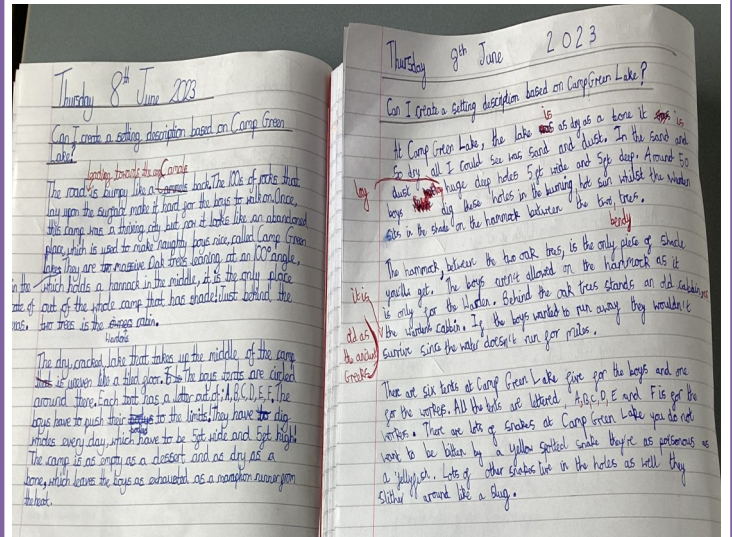 Thursday 8th June 2023
Can I create a setting description based on Camp Green
Lake?
leading towards the camp
The road is bumpy like a Camels back. The 100s of rocks that
lay upon the surface make it hard for the boys to walk on. Once,
this camp was a thriving city but now it looks like an abandoned
place, which is used to make naughty boys nice, called Camp Green
Lake. They are two massive Oak trees leaning at an 100° angle,
in the which holds a hannock in the middle, it is the only place
out of the whole camp that has shade! Just behind the
two trees is the cabin.
Wardens
The dry, cracked lake that takes up the middle of the camp
is uneven like a tiled floor. The boys tents are circled
around there. Each tent has a letter out of: A, B, C, D, E, F. The
boys have to push their to the limits! They have to dig
wholes every day, which have to be 5ft wide and 5ft high!
The camp is as empty as a dessert and as dry as a
bone, which leaves the boys as exhausted as a marathon runner from
the heat.
Thursday 8th June 2023
Can I create a setting description based on Camp Green Lake?
is
At Camp Green Lake, the lake as dry as a bone it is
So dry all I could see was sand and dust. In the sand and
dust lay huge deep holes 5ft wide and 5ft deep. Around 50
boys dig these holes in the burning hot sun whilst the warden
sits in the shade on the hammock between the two trees.
bendy
The hammock, between the two oak trees, is the only piece of shade
you'll get. The boys aren't allowed on the hammock as it
is only for the Warden. Behind the oak trees stands an old cabbin,
it is
old as
the ancient
Greeks
the wardens cabbin. If the boys wanted to run away they wouldn't
survive since the water doesn't run for miles.
There are six tents at Camp Green Lake five for the boys and one
for the workers. All the tents are lettered A, B, C, D, E and F is for the
workers. There are lots of snakes at Camp Green Lake you do not
want to be bitten by a yellow spotted snake they're as poisonous as
a jellyfish. Lots of other snakes live in the holes as well they
slither around like a slug.